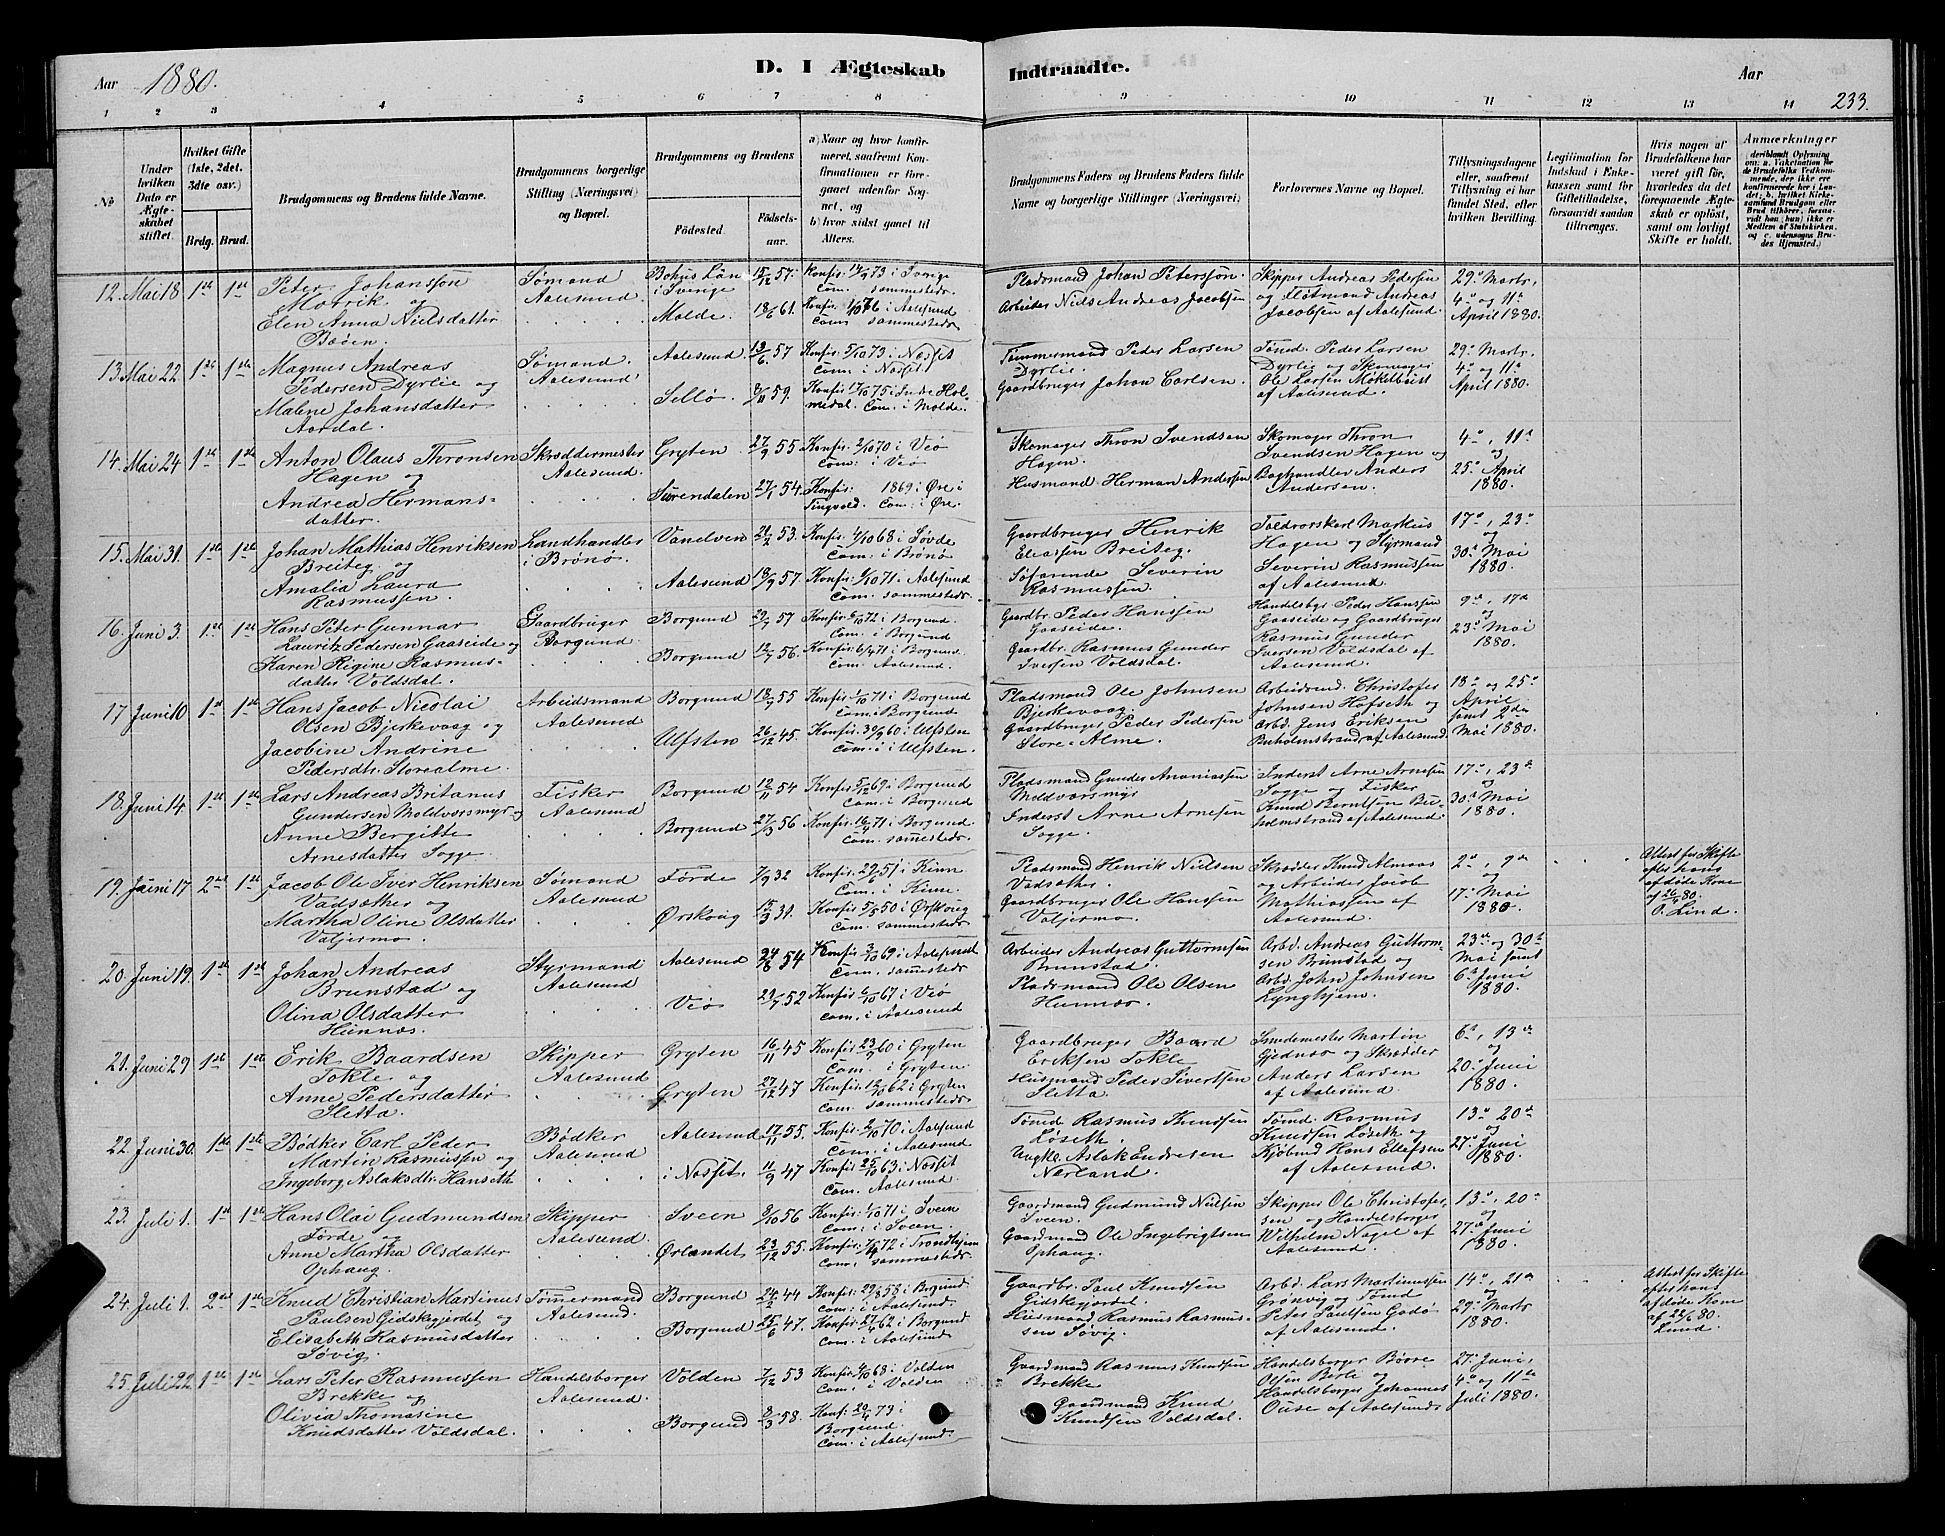 Aar 1880.
D. I Ægteskab Indtraadte.
Aar
233.
1 2 3 4 5 6 7 8 9 10 11 12 13 14
No
Under hvilken Dato er Ægteskabet stiftet.
Hvilket Gifte (1ste, 2det. 3dte osv.)
Brdg. Brud.
Brudgommens og Brudens fulde Navne.
Brudgommens borgerlige Stilling (Næringsvei) og Bopæl.
Brudgommens og Brudens
Fødested.
Fødselsaar.
a) Naar og hvor konfirmeret, saafremt Konfirmationen er foregaaet udenfor Sognet, og
b) hvor sidst gaaet til Alters.
Brudgommens Faders og Brudens Faders fulde Navne og borgerlige Stillinger (Næringsvei)
Forlovernes Navne og Bopæl.
Tillysningsdagene eller, saafremt Tillysning ei har fundet Sted, efter hvilken Bevilling.
Legitimation for Indskud i Enkekassen samt for Giftetilladelse, forsaavidt saadan tiltrænges.
Hvis nogen af Brudefolkene har været gift før, hvorledes da det foregaaende Ægteskab er opløst, samt om lovligt Skifte er holdt.
Anmærkninger
12. Mai 18 1ste 1ste Peter Johansson
og
Elen Anna Nielsdatter
Sømand Aalesund
Bohus Län i Sverige 15/12 57.
Molde. 18/6 61.
Pladsmand Johan Petersson.
Arbeider Niels Andreas Jacobsen
Skipper Andreas Pedersen og Fløtmand Andreas Jacobsen af Aalesund.
29de Marts, 4de og 11te April 1880.
13. Mai 22. 1ste 1ste Magnus Andreas Pedersen Dyrlie og
Malene Johansdatter Aardal.
Sømand. Aalesund
Aalesund. 13/6 57 Konfir. 5/10 73 i Nesset
Com. i Nesset.
Sellø. 59. Konfir. 17/10 75 i Indre Holmedal. Com. i Molde.
Tømmermand Peder Larsen Dyrlie.
Gaardbruger Johan Carlsen.
Tømd. Peder Larsen Dyrlie og Skomager Ole Larsen Møkelbust af Aalesund.
29de Marts, 4de og 11te April 1880.
14. Mai 24 1ste 1ste Anton Olaus Thronsen Hagen og
Andrea Hermansdatter.
Skræddermester Aalesund.
Gryten 27/9 55 Konfir. 2/10 70 i Veø
Com. i Veø
Surendalen 27/1 54. Konfir. 1869 i Øre i Tingvold. Com. i Øre.
Skomager Thron Svendsen Hagen.
Husmand Herman Andersen
Skomager Thron Svendsen Hagen og Baghandler Anders Andersen.
4de, 11te og 25de April 1880.
15. Mai 31. 1ste 1ste Johan Mathias Henriksen Breiteg og
Amalia Laura Rasmussen.
Landhandler i Brønø
Vanelven 21/2 53. Konfir. 1/10 68 i Søvde
Com. i Brønø
Aalesund 18/9 57. Konfir. 1/10 71 i Aalesund
Com. sammesteds.
Gaardbruger Henrik Eliassen Breiteg.
Søfarende Severin Rasmussen.
Toldrorskarl Markus Hagen og Styrmand Severin Rasmussen af Aalesund.
17de, 23de og 30te Mai 1880.
16. Juni 3. 1ste 1ste Hans Peter Gunnar Lauritz Pedersen Gaaseide og
Karen Regine Rasmusdatter Voldsdal.
Gaardbruger Borgund
Borgund 29/7 57 Konfir. 6/10 72 i Borgund.
Com. i Borgund
Borgund 12/7 56. Konfir. 71 i Borgund.
Com. Aalesund.
Gaardbr. Peder Hanssen Gaaseide.
Gaardbr. Rasmus Gunder Iversen Voldsdal.
Handelsbgr Peder Hanssen Gaaseide og Gaardbruger Rasmus Gunder Iversen Voldsdal af Aalesund.
9de, 17de og 23de Mai 1880.
17 Juni 10. 1ste 1ste Hans Jacob Nicolai Olsen Bjerkevaag og
Jacobine Andrine Pedersdtr. Storealme.
Arbeidsmand Aalesund
Borgund 18/9 55 Konfir. 1/10 71 i Borgund
Com. i Borgund
Ulfsten 26/12 45. Konfir. 30/9 60 i Ulfsten
Com. i Ulfsten.
Pladsmand Ole Johnsen Bjerkevaag.
Gaardbruger Peder Pedersen Store-Alme.
Arbeidsmd. Christofer Johnsen Hofseth og Arbd. Jens Eriksen Buholmstrand af Aalesund.
18de og 25de April samt 2den Mai 1880.
18. Juni 14. 1ste 1ste Lars Andreas Britanus Gundersen Moldværsmyr og
Anne Bergitte Arnesdatter Sogge.
Fisker Aalesund
Borgund 12/11 54 Konfir. 5/12 69 i Borgund
Com. i Borgund
Borgund 27/3 56 Konfir. 16/4 71 i Borgund.
Com. sammesteds.
Pladsmand Gunder Ananiassen Moldværsmyr
Inderst Arne Arnesen Sogge.
Inderst Arne Arnesen Sogge og Fisker Knud Berntsen Buholmstrand af Aalesund.
17de, 23de og 30te Mai 1880.
19. Juni 17. 2det 1ste Jacob Ole Iver Henriksen Vadsæther og
Martha Oline Olsdatter Valjermo.
Sømand Aalesund
Førde 7/9 32 Konfir. 29/6 51 i Kinn
Com. i Kinn.
Ørskoug 15/3 31. Konfir. 5/5 50 i Ørskoug
Com. sammesteds.
Pladsmand Henrik Nielsen Vadsæther.
Gaardbruger Ole Hanssen Valjermo.
Skrædder Knud Almaas og Arbeider Jacob Mathiassen af Aalesund.
2de, 9de og 17de Mai 1880.
Attest for Skifte efter hans afdøde Kone af 26/4 80. O. Lind.
20. Juni 19. 1ste 1ste Johan Andreas Brunstad og
Olina Olsdatter Hunnæs.
Styrmand Aalesund
Aalesund 24/8 54 Konfir. 3/10 69 i Aalesund
Com. sammesteds
Veø 23/7 52 Konfir. 6/10 67 i Veø
Com. i Aalesund
Arbeider Andreas Guttormsen Brunstad.
Pladsmand Ole Olsen Hunnæs.
Arbd. Andreas Guttormsen Brunstad og Arbd. John Johnsen Lynghjem.
23de og 30te Mai samt 6te Juni 1880.
21. Juni 29 1ste 1ste Erik Baardsen Tokle og
Anne Pedersdatter Sletta.
Skipper Aalesund
Gryten 16/11 45 Konfir. 23/9 60 i Gryten
Com. i Gryten.
Gryten 27/12 47 Konfir. 12/10 62 i Gryten
Com. sammesteds.
Gaardbruger Baard Eriksen Tokle
Husmand Peder Sivertsen Sletta.
Smedemester Martin Gjednæs og Skrædder Anders Larsen af Aalesund.
6te, 13de og 20de Juni 1880.
22. Juni 30. 1ste 1ste Bødker Carl Peder Martin Rasmussen og
Ingeborg Aslaksdtr. Hanseth
Bødker Aalesund
Aalesund 17/11 55. Konfir. 2/10 70 i Aalesund
Com. i Aalesund
i Nesset. 11/9 47 Konfir. 25/10 63 i Nesset
Com. Aalesund
Tømd. Rasmus Knudsen Løseth.
Ungkl. Aslak Endresen Nerland.
Tømd. Rasmus Knudsen Løseth og Kjøbmd Hans Ellefsen af Aalesund.
13de, 20de og 27de Juni 1880.
23. Juli 1. 1ste 1ste Hans Olai Gudmundsen Førde og
Anne Martha Olsdatter Ophaug.
Skipper Aalesund.
Sveen 2/10 56 Konfir. 1/10 71 i Sveen
Com. i Sveen.
Ørlandet 23/12 55. Konfir. 72 i Trondhjem
Com. sammesteds.
Gaardmand Gudmund Nielsen Sveen.
Gaardmand Ole Ingebrigtsen Ophaug.
Skipper Ole Christofersen og Handelsborger Wilhelm Nagel af Aalesund.
13de, 20de og 27de Juni 1880.
24. Juli 1. 2det 1ste Knud Christian Martinus Paulsen Gidskegjerdet og
Elisabeth Rasmusdatter Søvig.
Tømmermand Aalesund.
Borgund 24/2 44 Konfir. 29/8 58 i Borgund
Com. i Aalesund.
Borgund 25/6 47. Konfir. 27/4 62 i Borgund
Com. i Aalesund.
Gaardbr. Paul Knudsen Gidskegjerdet.
Husmand Rasmus Rasmussen Søvig.
Arbd. Lars Martinussen Grønvig og Tømd Peter Paulsen Godø af Aalesund.
14de, 21de og 29de Marts 1880.
Attest for Skifte efter hans afdøde Kone af 22/6 80. Lund.
25. Juli 22. 1ste 1ste Lars Peter Rasmussen Brekke og
Olivia Thomasine Knudsdatter Voldsdal.
Handelsborger Aalesund.
Volden 7/12 53 Konfir. 4/10 68 i Volden
Com. i Volden
Borgund 3/3 58. Konf. 20/4 73 i Borgund.
Com. i Aalesund.
Gaardmand Rasmus Knudsen Brekke
Gaardmand Knud Knudsen Voldsdal.
Handelsborger Børre Olsen Birle og Handelsborger Johannes Ouse af Aalesund.
27de Juni, 4de og 11te Juli 1880.